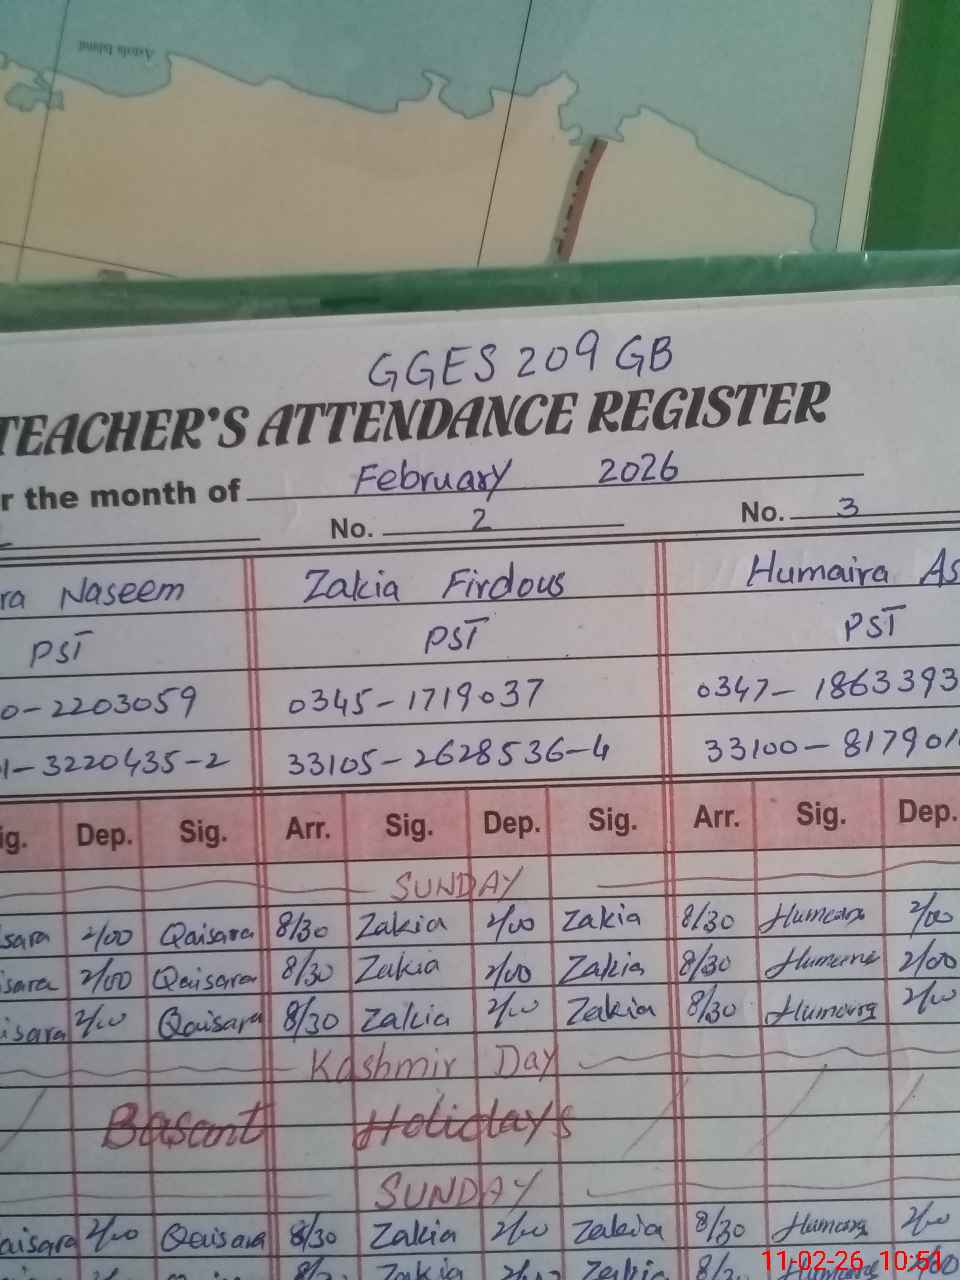 Astola Island
GGES 209 GB
TEACHER'S ATTENDANCE REGISTER
r the month of February 2026
No. 2 No. 3
ra Naseem Zakia Firdous Humaira As
PST PST PST
0-2203059 0345-1719037 0347-1863393
1-3220435-2 33105-2628536-4 33100-817901
ig. Dep. Sig. Arr. Sig. Dep. Sig. Arr. Sig. Dep.
SUNDAY
sara 2/00 Qaisara 8/30 Zakia 2/00 Zakia 8/30 Humaira 2/00
isara 2/00 Qaisara 8/30 Zakia 2/00 Zakia 8/30 Humaira 2/00
isara 2/00 Qaisara 8/30 Zakia 2/00 Zakia 8/30 Humaira 2/00
Kashmir Day
Basant Holidays
SUNDAY
aisara 2/00 Qaisara 8/30 Zakia 2/00 Zakia 8/30 Humaira 2/00
11-02-26 10:51